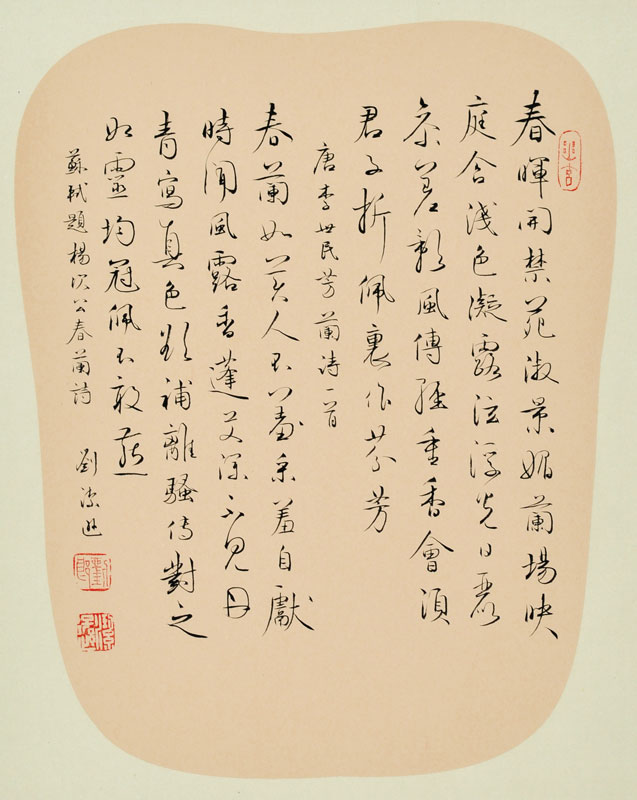 春暉開禁苑淑景媚蘭場映
庭含淺色凝露泫浮光日麗
參差影風傳輕重香會須
君子折佩裏作芬芳
唐李世民芳蘭诗一首
春蘭如美人不採羞自獻
時聞風露香蓬艾深不見丹
青寫真色欲補離騷傳對之
如靈均冠佩不敢燕
蘇軾題楊次公春蘭詩
劉潔